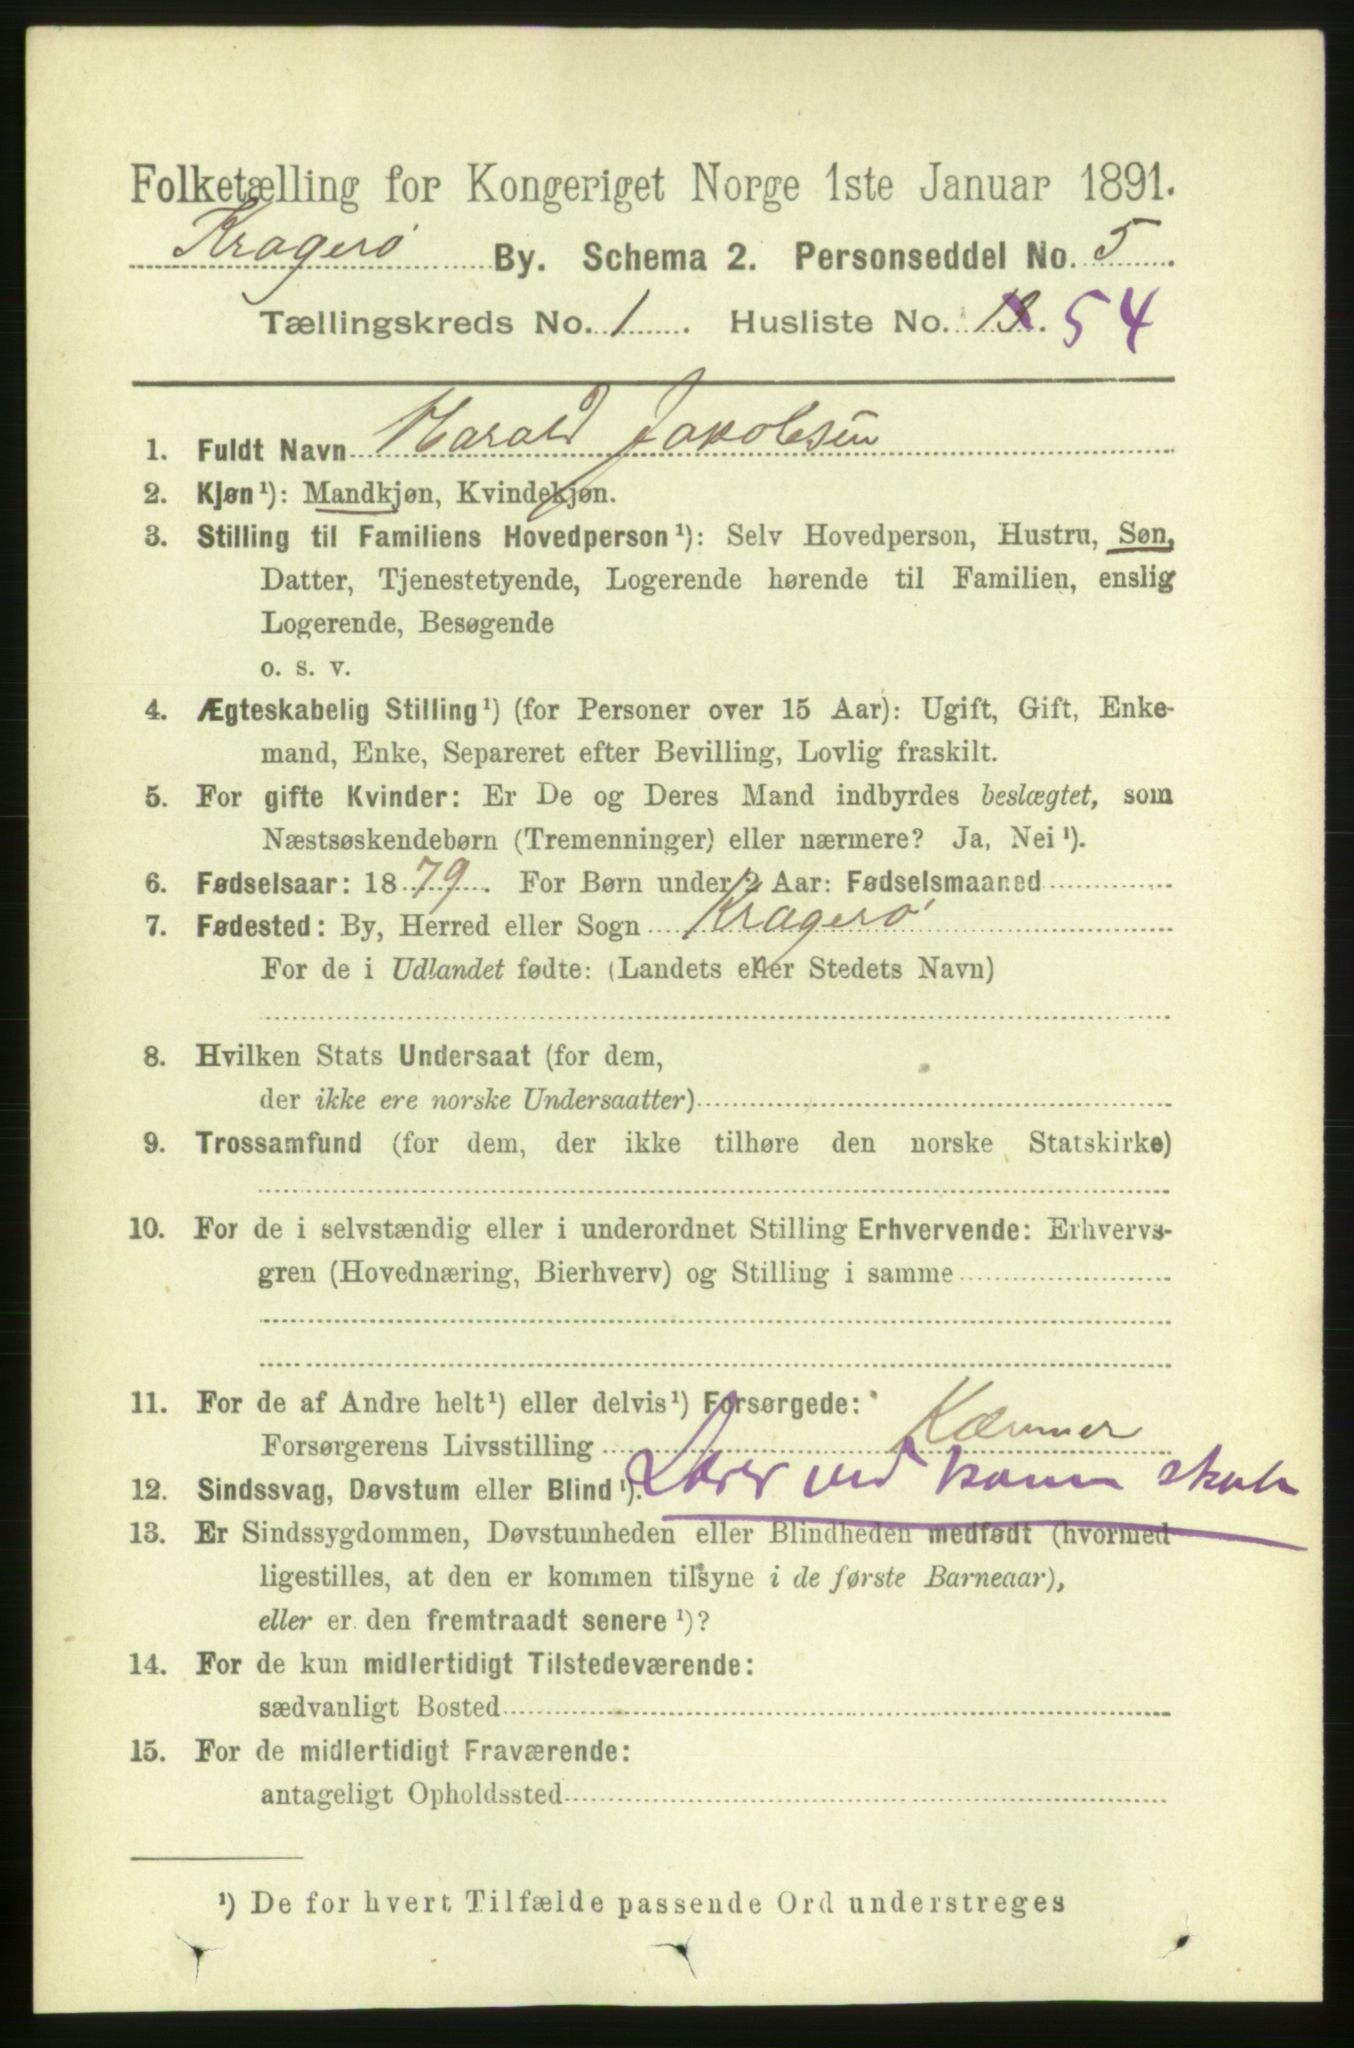 Folketælling for Kongeriget Norge 1ste Januar 1891.
Kragerø By. Schema 2. Personseddel No. 5.
Tællingskreds No. 1. Husliste No. 54
1. Fuldt Navn Harald Jakobsen
2. Kjøn¹): Mandkjøn, Kvindekjøn.
3. Stilling til Familiens Hovedperson¹): Selv Hovedperson, Hustru, Søn,
Datter, Tjenestetyende, Logerende hørende til Familien, enslig
Logerende, Besøgende
o. s. v.
4. Ægteskabelig Stilling¹) (for Personer over 15 Aar): Ugift, Gift, Enke-
mand, Enke, Separeret efter Bevilling, Lovlig fraskilt.
5. For gifte Kvinder: Er De og Deres Mand indbyrdes beslægtet, som
Næstsøskendebørn (Tremenninger) eller nærmere? Ja, Nei¹).
6. Fødselsaar: 1879. For Børn under 2 Aar: Fødselsmaaned
7. Fødested: By, Herred eller Sogn Kragerø
For de i Udlandet fødte: (Landets eller Stedets Navn)
8. Hvilken Stats Undersaat (for dem,
der ikke ere norske Undersaatter)
9. Trossamfund (for dem, der ikke tilhøre den norske Statskirke)
10. For de i selvstændig eller i underordnet Stilling Erhvervende: Erhvervs-
gren (Hovednæring, Bierhverv) og Stilling i samme
11. For de af Andre helt¹) eller delvis¹) Forsørgede:
Forsørgerens Livsstilling Kæmner
Lærer ved kom skole
12. Sindssvag, Døvstum eller Blind¹).
13. Er Sindssygdommen, Døvstumheden eller Blindheden medfødt (hvormed
ligestilles, at den er kommen tilsyne i de første Barneaar),
eller er den fremtraadt senere¹)?
14. For de kun midlertidigt Tilstedeværende:
sædvanligt Bosted
15. For de midlertidigt Fraværende:
antageligt Opholdssted
¹) De for hvert Tilfælde passende Ord understreges